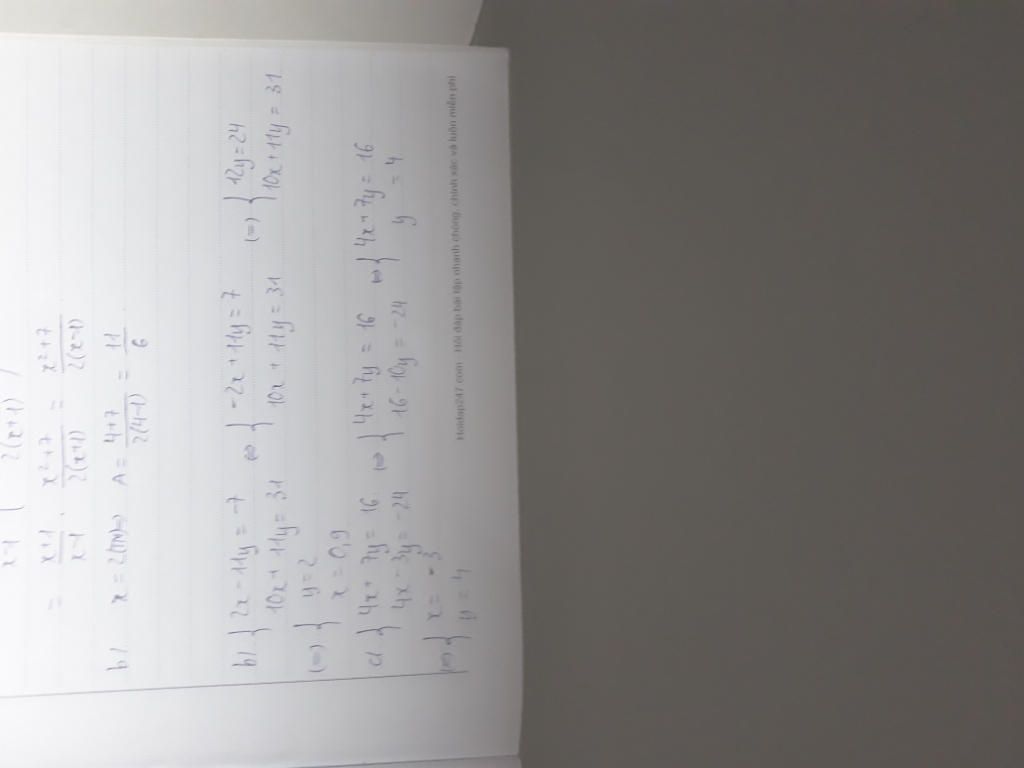 x-1 ( 2(x+1) )
= x+1/x-1 . x²+7/2(x+1) = x²+7/2(x-1)
b) x = 2(tm) => A = 4+7/2(4-1) = 11/6
b) { 2x - 11y = -7 <=> { -2x + 11y = 7 (=) { 12y = 24
10x + 11y = 31 10x + 11y = 31 10x + 11y = 31
(=) { y = 2
x = 0,9
c) { 4x + 7y = 16 <=> { 4x + 7y = 16 <=> { 4x + 7y = 16
4x - 3y = -24 16 - 10y = -24 y = 4
(=) { x = -3
y = 4
Hoidap247.com - Hỏi đáp bài tập nhanh chóng, chính xác và luôn miễn phí